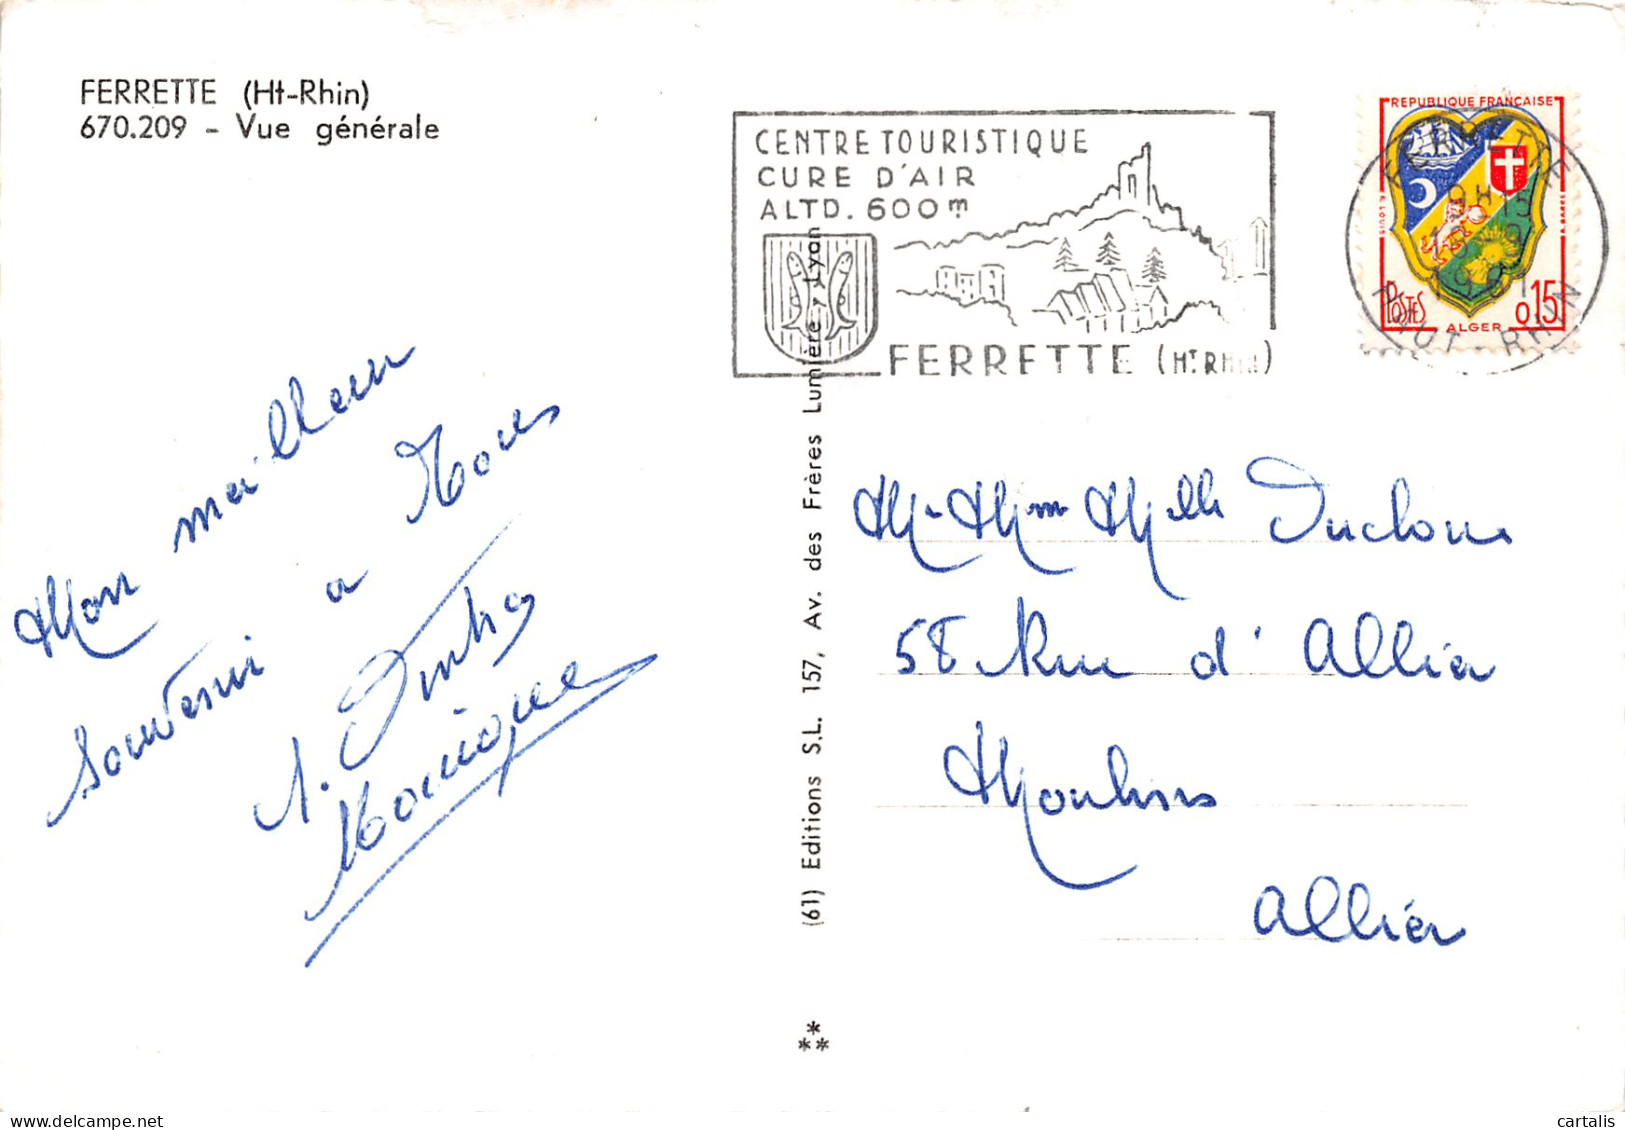 FERRETTE (Ht-Rhin)
670.209 - Vue générale
CENTRE TOURISTIQUE
CURE D'AIR
ALTD. 600m
FERRETTE (HT RHIN)
REPUBLIQUE FRANÇAISE
POSTES
ALGER
0,15
FERRETTE
9H15
1961
HAUT-RHIN
Mon meilleur
souvenir à Tous
Monique
(61) Editions S.L. 157, Av. des Frères Lumière, Lyon
M. Mm Melle Ducloux
58 Rue d'Allier
Moulins
Allier
cartalis